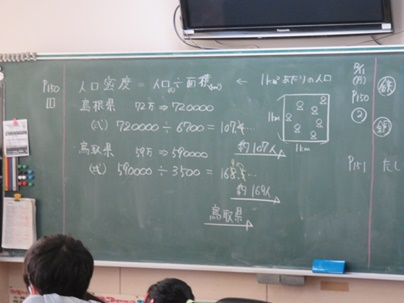 P150
1
人口密度 = 人口 ÷ 面積 ← 1km²あたりの人口
島根県 72万 ⇒ 720000
(式) 720000 ÷ 6700 = 107.4…
約107人
鳥取県 59万 ⇒ 590000
(式) 590000 ÷ 3500 = 168.5…
約169人
鳥取県
1km
1km
P150
2
P151